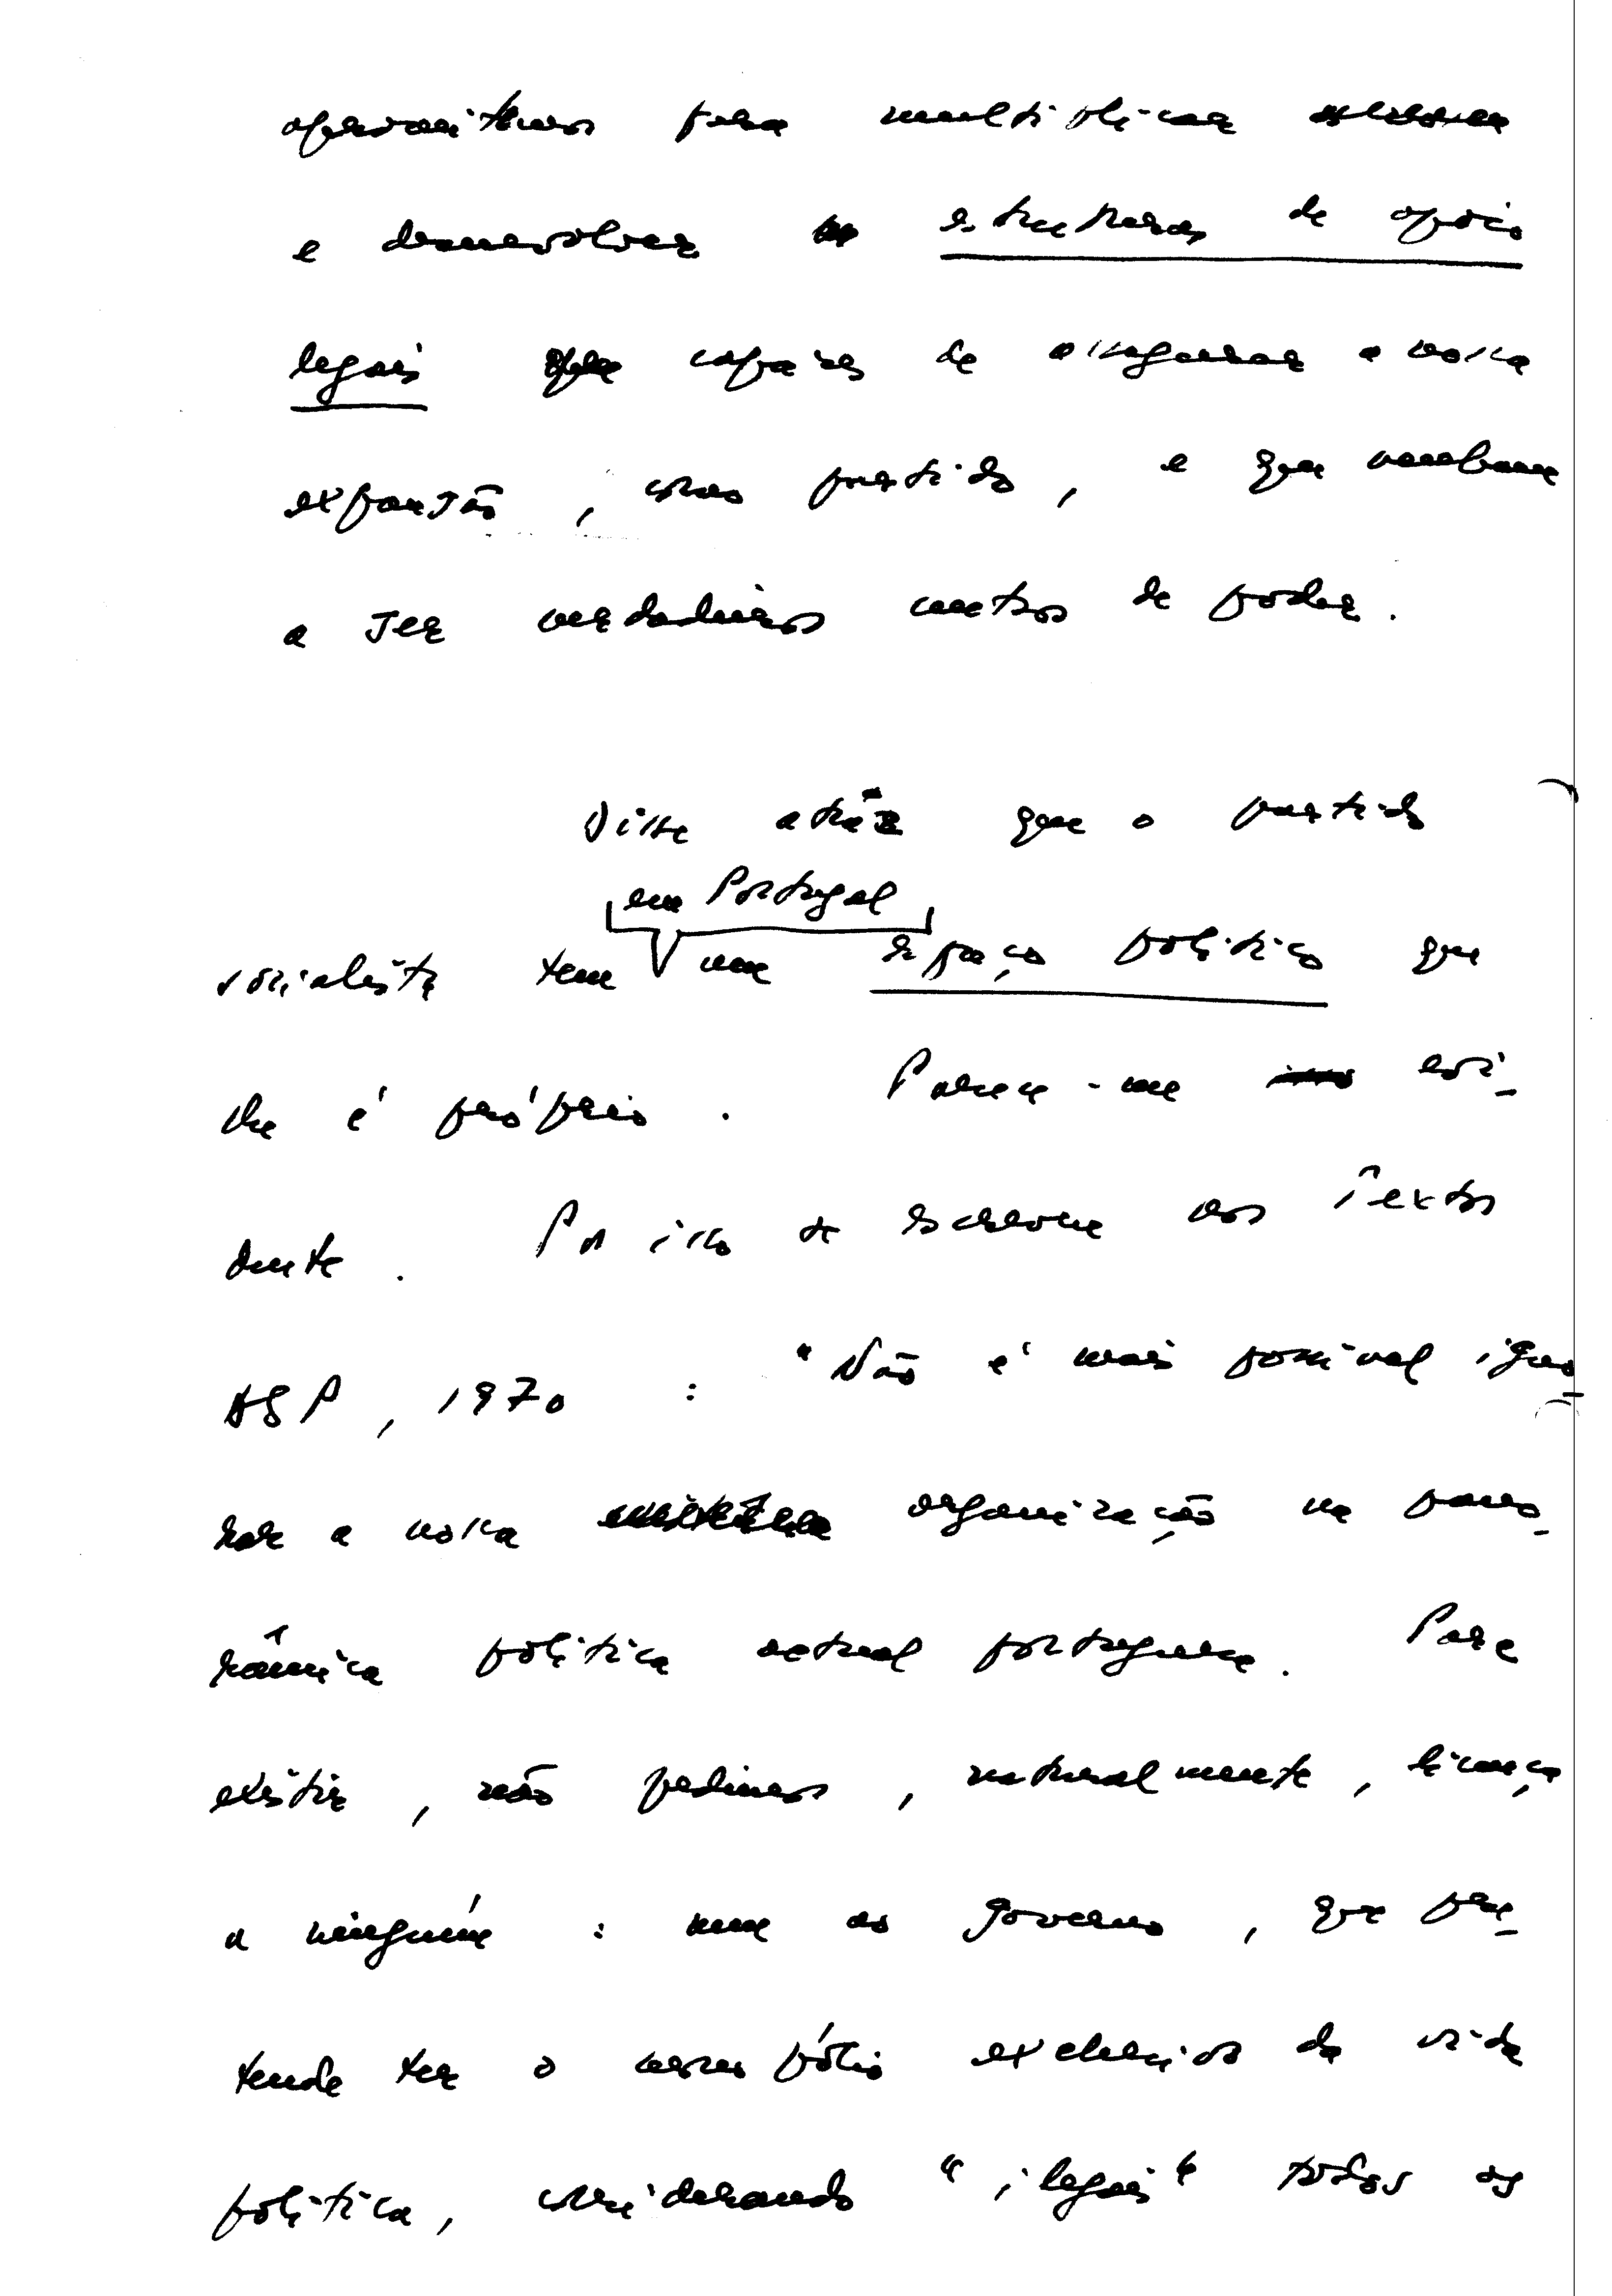 aproveitemos para multiplicar
e desenvolver estruturas de apoio
legais capazes de assegurar a nossa
expansão, como partido, e que venham
a ser verdadeiros centros de poder.
Disse atrás que o partido
em Portugal
socialista tem um espaço político que
lhe é próprio. Parece-me evi-
dente. Por isso se escreveu nos Textos
ASP, 1970 : "Não é mais possível igno-
rar a nossa organização na pano-
râmica política actual portuguesa. Para
existir, não pedimos, naturalmente, licença
a ninguém : nem ao governo, que pre-
tende ter o monopólio exclusivo da vida
política, considerando "ilegais" todos os